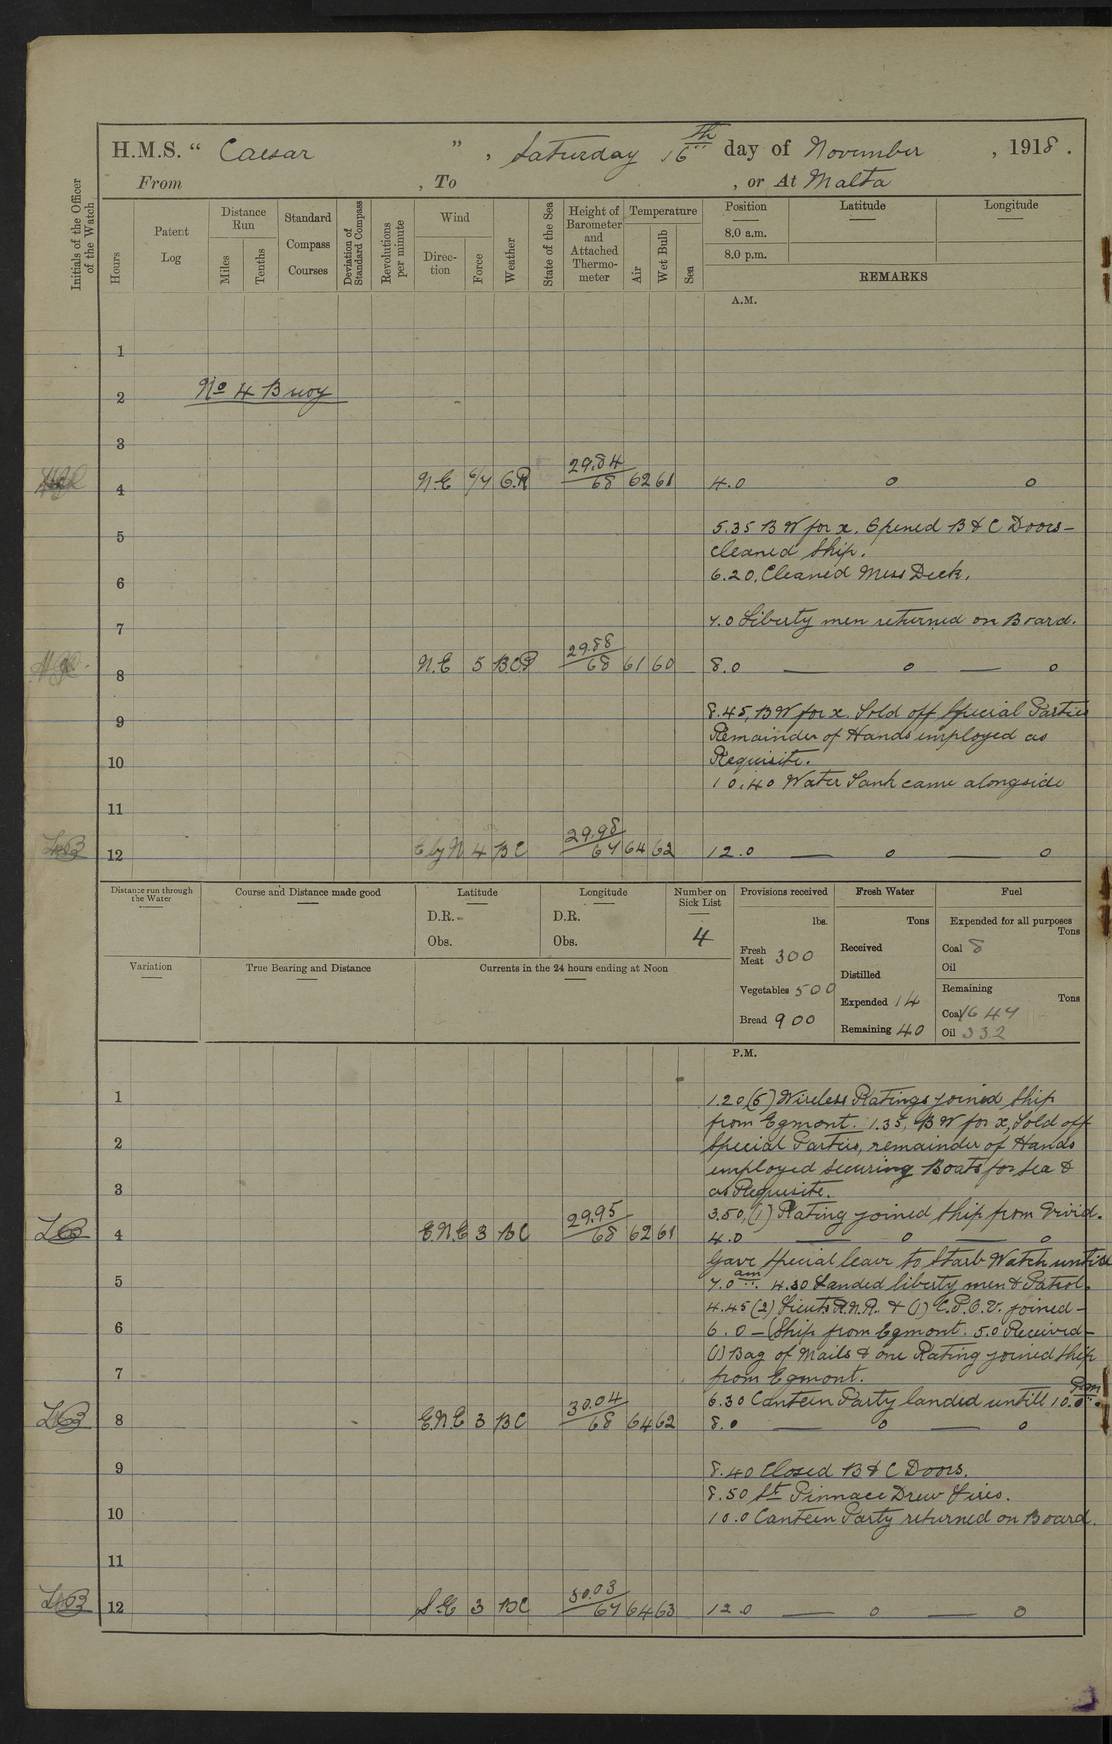 H.M.S. " Caesar ", Saturday 16th day of November, 1918.
From , To , or At Malta
Initials of the Officer of the Watch
Hours
Patent Log
Distance Run
Miles
Tenths
Standard Compass Courses
Deviation of Standard Compass
Revolutions per minute
Wind
Direction
Force
Weather
State of the Sea
Height of Barometer and Attached Thermometer
Temperature
Air
Wet Bulb
Sea
Position
8.0 a.m.
8.0 p.m.
Latitude
Longitude
REMARKS
A.M.
1
No 4 Buoy
2
3
4 N.E 6/7 29.84 68 62 61 4.0 o o
5.35 BW for x. Opened B & C Doors -
5
cleaned Ship.
6 6.20. Cleaned Mess Deck.
7 7.0 Liberty men returned on Board.
8 N.E 5 29.88 68 61 60 8.0 — o — o
8.45, BW for x. Told off Special Parties
9
Remainder of Hands employed as
10 Requisite.
10.40 Water Tank came alongside
11
12 E by N 4 BC 29.98 67 64 62 12.0 — o — o
Distance run through the Water
Course and Distance made good
Latitude
D.R.
Obs.
Longitude
D.R.
Obs.
Number on Sick List
4
Provisions received
lbs.
Fresh Meat 300
Vegetables 500
Bread 900
Fresh Water
Tons
Received
Distilled
Expended 14
Remaining 40
Fuel
Expended for all purposes
Tons
Coal 8
Oil
Remaining
Tons
Coal 1647
Oil 332
Variation
True Bearing and Distance
Currents in the 24 hours ending at Noon
P.M.
1 1.20 (5) Wireless Ratings joined Ship
from Egmont. 1.35, BW for x, Told off
2 Special Parties, remainder of Hands
employed securing Boats for Sea &
3 as Requisite.
3.50, (1) Rating joined Ship from Vivid.
4 E.N.E 3 BC 29.95 68 62 61 4.0 — o — o
Gave Special leave to Starb Watch untill
5 7.0 am. 4.30 Landed liberty men & Patrol.
4.45 (2) Lieuts R.N.R. & (1) joined -
6 6.0 - (Ship from Egmont. 5.0 Received -
(1) Bag of Mails & one Rating joined Ship
7 from Egmont.
6.30 Canteen Party landed untill 10.0 Pm.
8 E.N.E 3 BC 30.04 68 64 62 8.0 — o — o
9 8.40 Closed B & C Doors.
8.50 St Pinnace Drew Fires.
10 10.0 Canteen Party returned on Board.
11
12 S.E 3 BC 30.03 67 64 63 12.0 — o — o